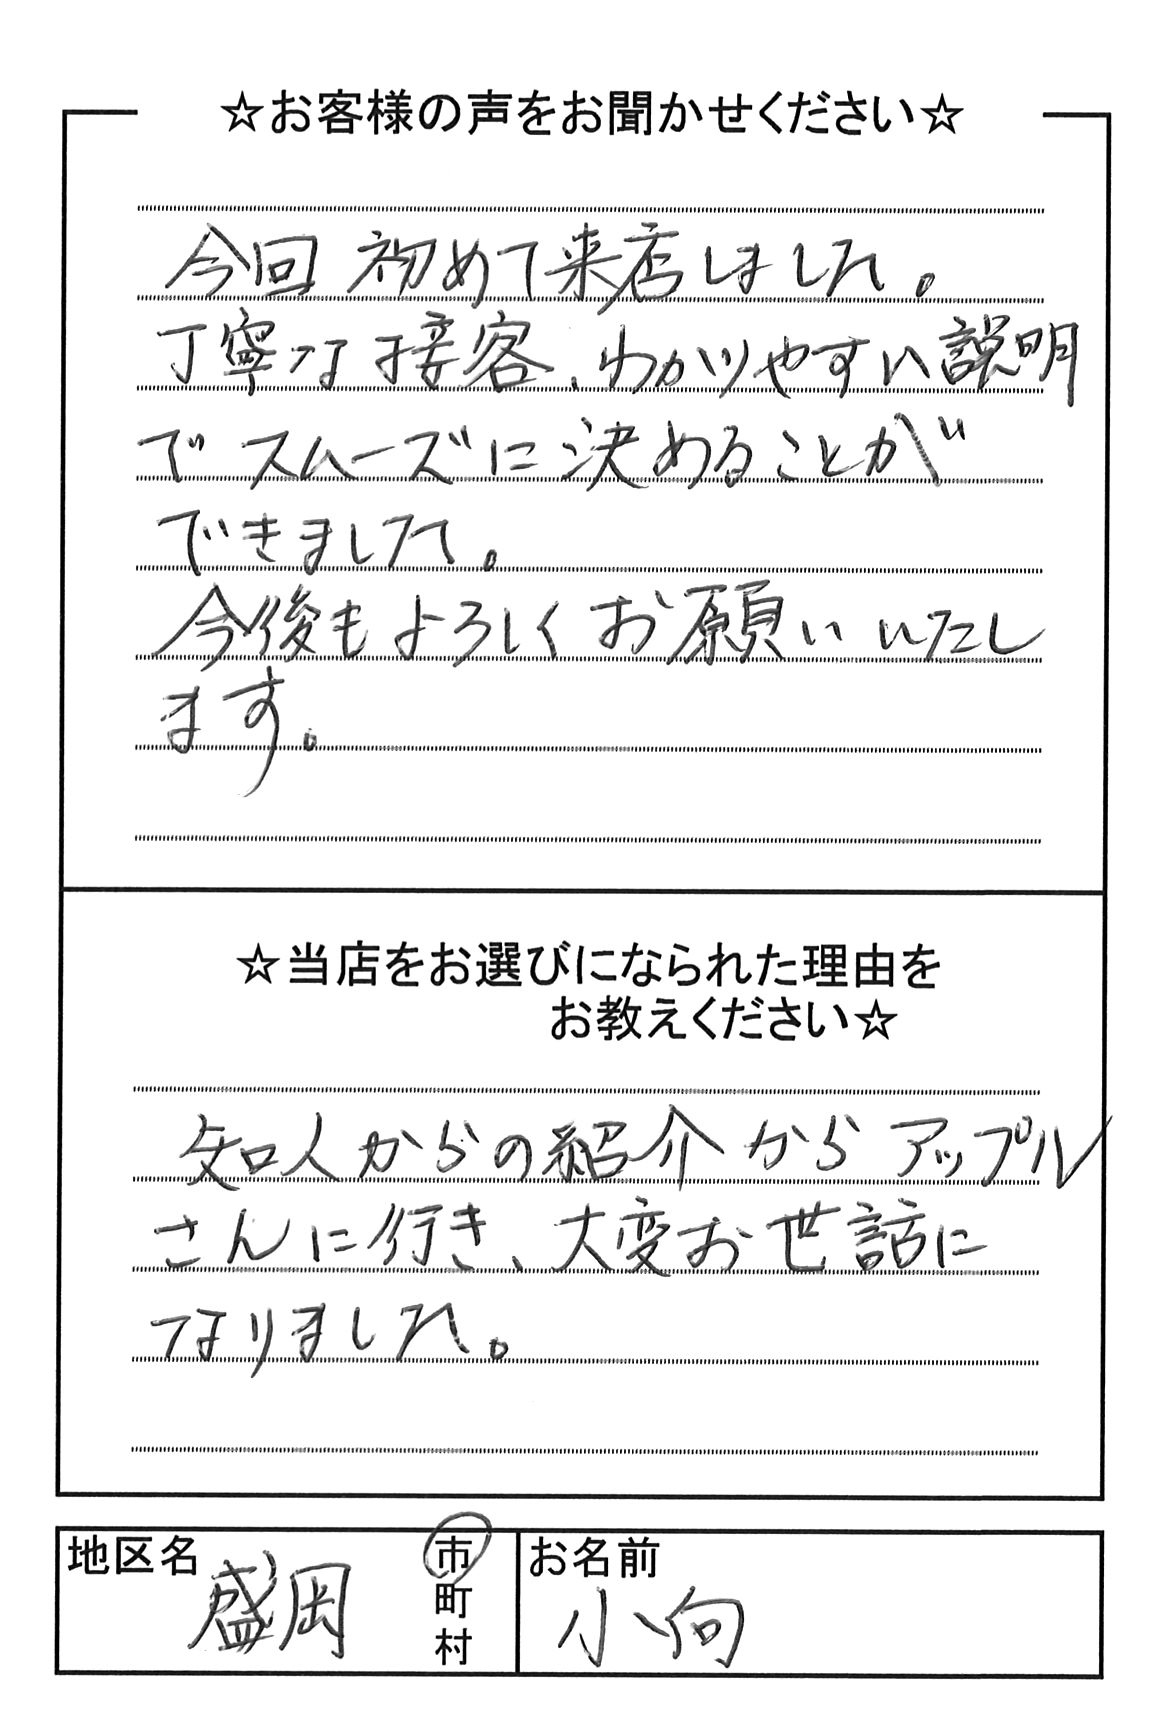 ☆お客様の声をお聞かせください☆
今回 初めて来店しました。
丁寧な接客、わかりやすい説明
でスムーズに決めることが
できました。
今後もよろしくお願いいたし
ます。
☆当店をお選びになられた理由を
お教えください☆
知人からの紹介からアップル
さんに行き、大変お世話に
なりました。
地区名 盛岡 市
町
村
お名前 小向